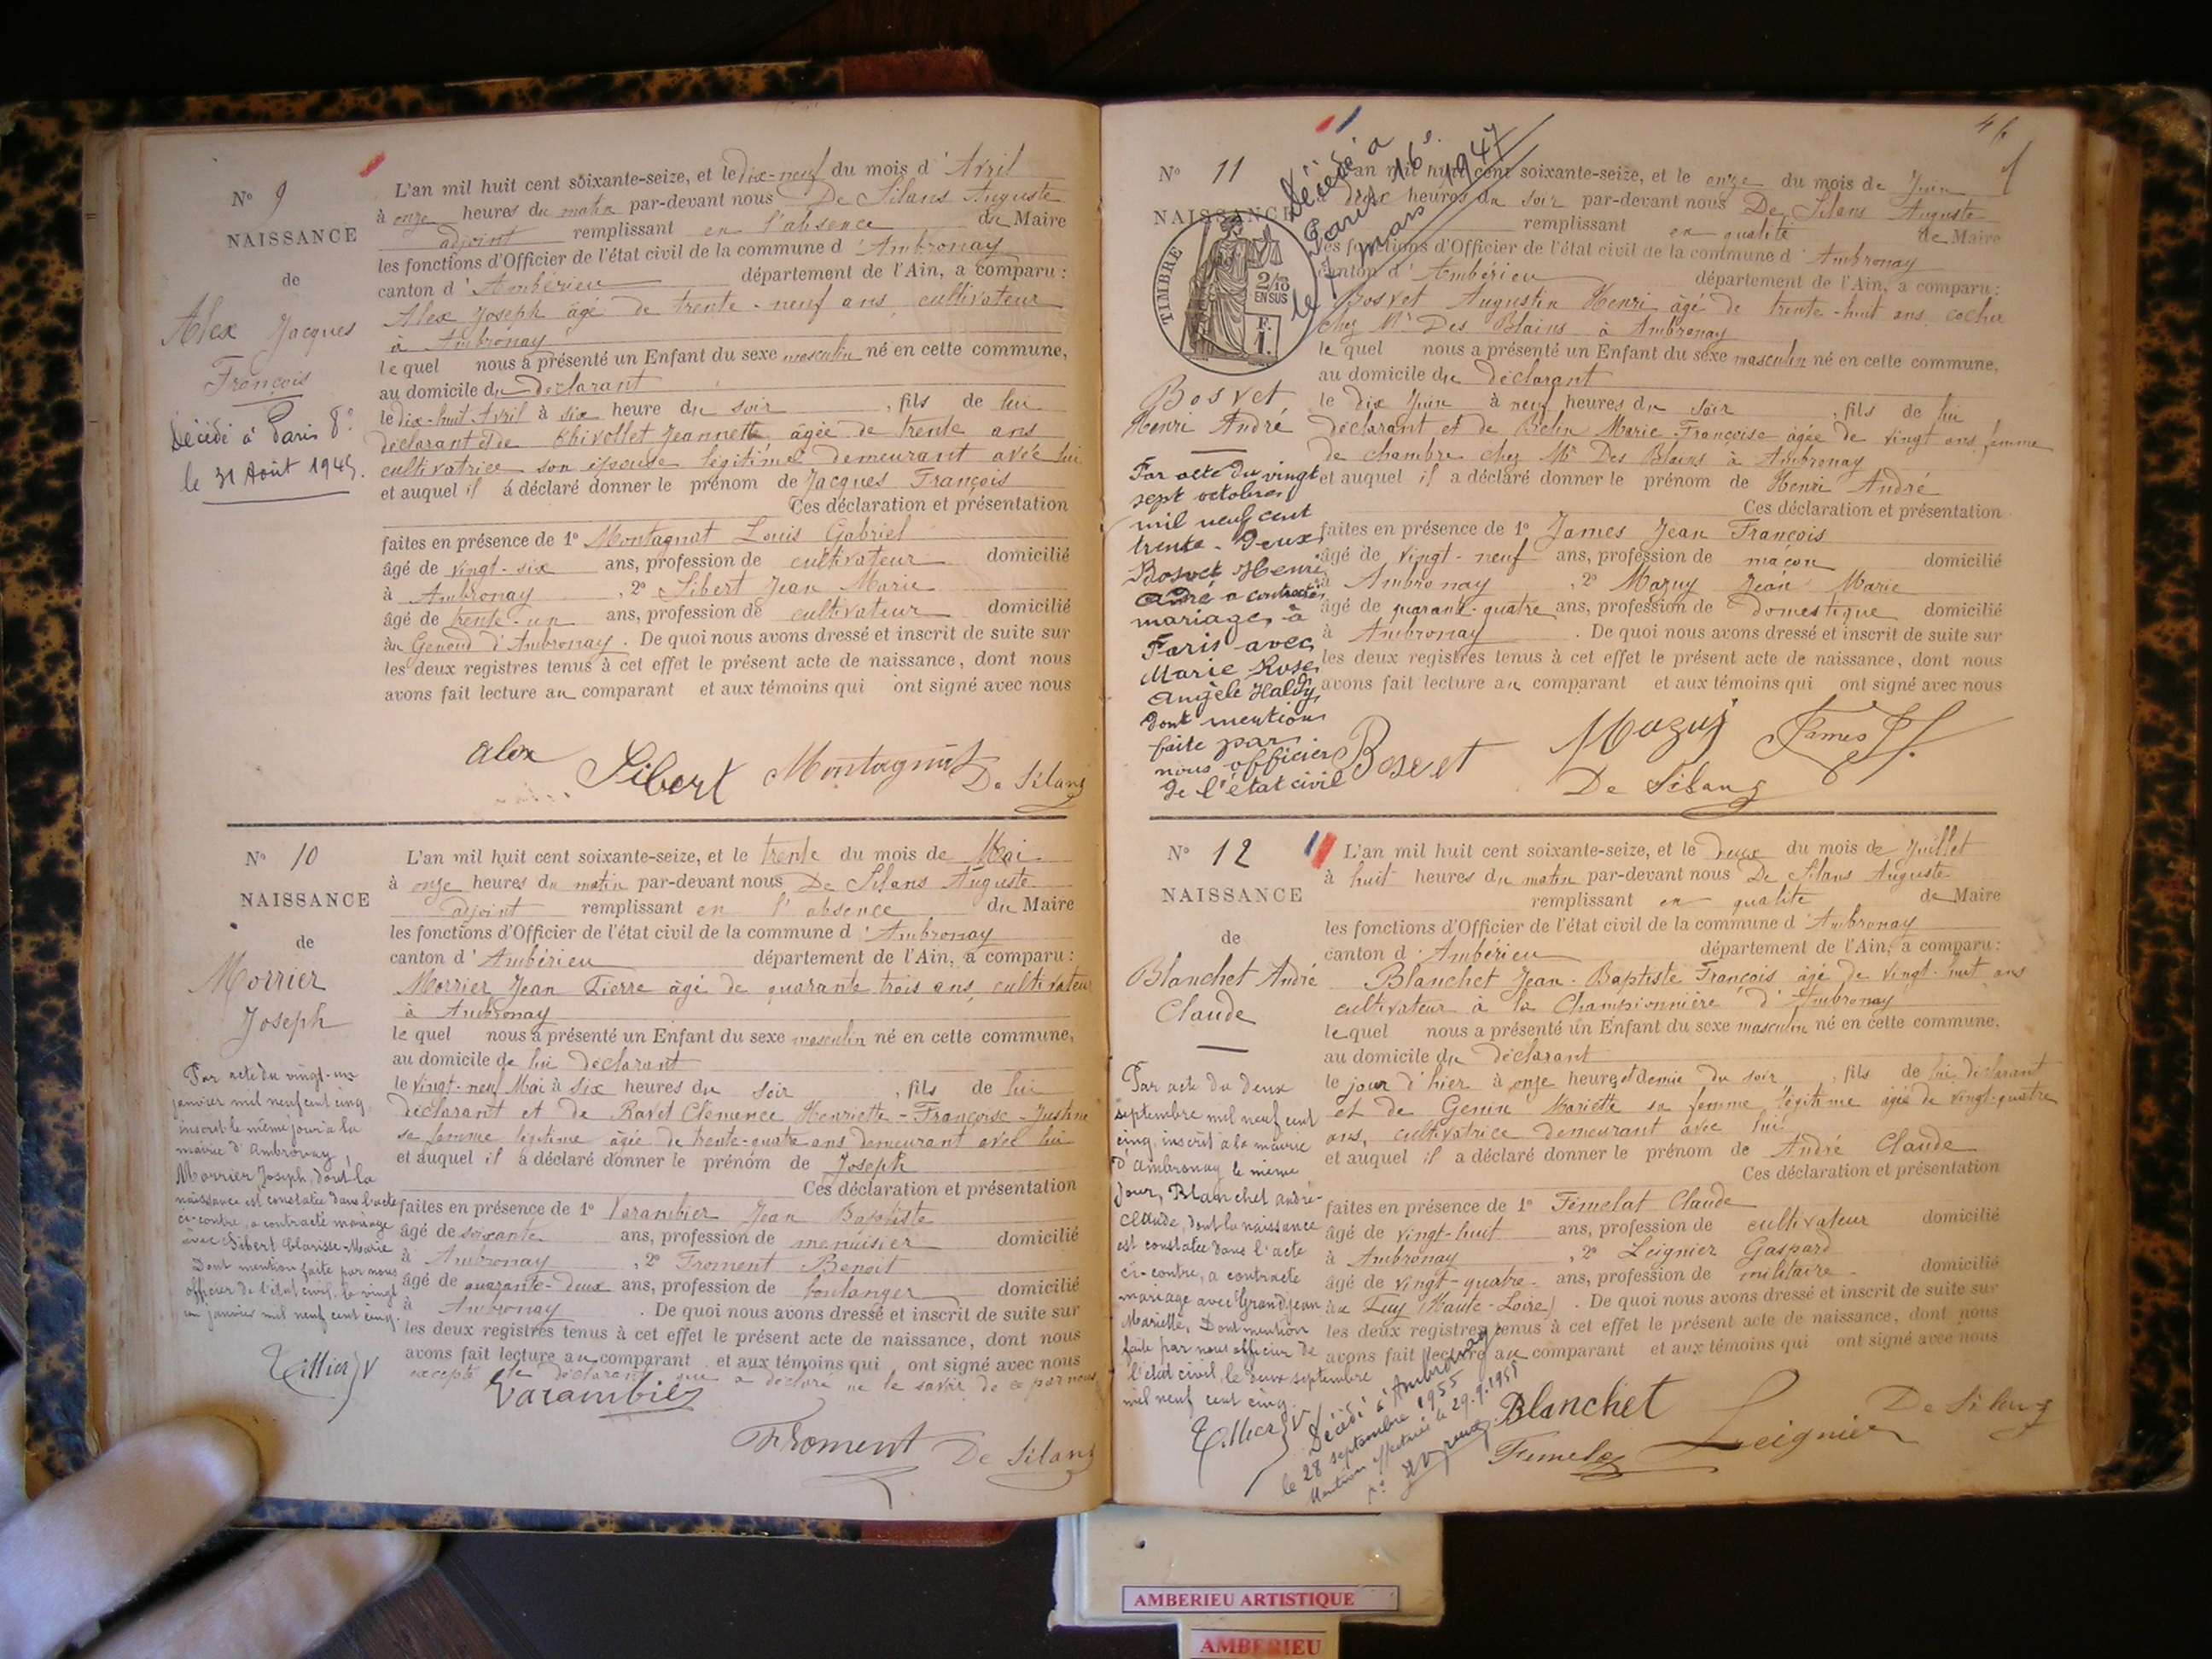 N° 9
NAISSANCE
de
Alex Jacques
François
Décédé à Paris 8e
le 31 Août 1945.
L'an mil huit cent soixante-seize, et le dix-neuf du mois d'Avril
à onze heures du matin par-devant nous De Silans Auguste
adjoint remplissant en l'absence du Maire
les fonctions d'Officier de l'état civil de la commune d'Ambronay
canton d'Ambérieu département de l'Ain, a comparu :
Alex Joseph âgé de trente-neuf ans cultivateur
à Ambronay
lequel nous a présenté un Enfant du sexe masculin né en cette commune,
au domicile du déclarant
le dix-huit Avril à six heure du soir, fils de lui
déclarant et de Chivollet Jeannette âgée de trente ans
cultivatrice son épouse légitime demeurant avec lui
et auquel il a déclaré donner le prénom de Jacques François
Ces déclaration et présentation
faites en présence de 1° Montagnat Louis Gabriel
âgé de vingt-six ans, profession de cultivateur domicilié
à Ambronay, 2° Sibert Jean Marie
âgé de trente-un ans, profession de cultivateur domicilié
au Genoud d'Ambronay. De quoi nous avons dressé et inscrit de suite sur
les deux registres tenus à cet effet le présent acte de naissance, dont nous
avons fait lecture au comparant et aux témoins qui ont signé avec nous
alex Sibert Montagnat De Silans
N° 10
NAISSANCE
de
Morrier
Joseph
Par acte du vingt-un
janvier mil neuf cent cinq
inscrit le même jour à la
mairie d'Ambronay,
Morrier Joseph, dont la
naissance est constatée dans l'acte
ci-contre, a contracté mariage
avec Sibert Clarisse-Marie
Dont mention faite par nous
officier de l'état civil, le vingt
un janvier mil neuf cent cinq.
Tillier V
L'an mil huit cent soixante-seize, et le trente du mois de Mai
à onze heures du matin par-devant nous De Silans Auguste
adjoint remplissant en l'absence du Maire
les fonctions d'Officier de l'état civil de la commune d'Ambronay
canton d'Ambérieu département de l'Ain, a comparu :
Morrier Jean Pierre âgé de quarante trois ans cultivateur
à Ambronay
lequel nous a présenté un Enfant du sexe masculin né en cette commune,
au domicile de lui déclarant
le vingt-neuf Mai à six heures du soir, fils de lui
déclarant et de Ravet Clémence Henriette-Françoise-Justine
sa femme légitime âgée de trente-quatre ans demeurant avec lui
et auquel il a déclaré donner le prénom de Joseph
Ces déclaration et présentation
faites en présence de 1° Varambier Jean Baptiste
âgé de soixante ans, profession de menuisier domicilié
à Ambronay, 2° Froment Benoit
âgé de quarante-deux ans, profession de boulanger domicilié
à Ambronay. De quoi nous avons dressé et inscrit de suite sur
les deux registres tenus à cet effet le présent acte de naissance, dont nous
avons fait lecture au comparant et aux témoins qui ont signé avec nous
excepté le déclarant qui a déclaré ne le savoir de ce par nous
Varambier
Froment De Silans
N° 11
NAISSANCE
TIMBRE
2/10
EN SUS
F.
1.
Décédé à
Paris 16e
le 7 mars 1947
Bosvet
Henri André
Par acte du vingt
sept octobre
mil neuf cent
trente-deux
Bosvet Henri
André a contracté
mariage à
Paris avec
Marie Rose
Angèle Haldy
dont mention
faite par
nous officier
de l'état civil
L'an mil huit cent soixante-seize, et le onze du mois de Juin
à deux heures du soir par-devant nous De Silans Auguste
remplissant en qualité de Maire
les fonctions d'Officier de l'état civil de la commune d'Ambronay
canton d'Ambérieu département de l'Ain, a comparu :
Bosvet Augustin Henri âgé de trente-huit ans cocher
chez Mr Des Blains à Ambronay
lequel nous a présenté un Enfant du sexe masculin né en cette commune,
au domicile du déclarant
le dix Juin à neuf heures du soir, fils de lui
déclarant et de Belin Marie Françoise âgée de vingt ans femme
de chambre chez Mr Des Blains à Ambronay
et auquel il a déclaré donner le prénom de Henri André
Ces déclaration et présentation
faites en présence de 1° James Jean François
âgé de vingt-neuf ans, profession de maçon domicilié
à Ambronay, 2° Mazuy Jean Marie
âgé de quarante-quatre ans, profession de domestique domicilié
à Ambronay. De quoi nous avons dressé et inscrit de suite sur
les deux registres tenus à cet effet le présent acte de naissance, dont nous
avons fait lecture au comparant et aux témoins qui ont signé avec nous
Bosvet Mazuy James
De Silans
N° 12
NAISSANCE
de
Blanchet André
Claude
Par acte du deux
septembre mil neuf cent
cinq, inscrit à la mairie
d'Ambronay le même
jour, Blanchet André-
Claude, dont la naissance
est constatée dans l'acte
ci-contre, a contracté
mariage avec Grandjean
Mariette, Dont mention
faite par nous officier de
l'état civil, le deux septembre
mil neuf cent cinq.
Tillier V
Décédé à Ambronay
le 28 septembre 1955
Mention effectuée le 29.9.1955
L'an mil huit cent soixante-seize, et le deux du mois de Juillet
à huit heures du matin par-devant nous De Silans Auguste
remplissant en qualité de Maire
les fonctions d'Officier de l'état civil de la commune d'Ambronay
canton d'Ambérieu département de l'Ain, a comparu :
Blanchet Jean-Baptiste François âgé de vingt-huit ans
cultivateur à la Championnière d'Ambronay
lequel nous a présenté un Enfant du sexe masculin né en cette commune,
au domicile du déclarant
le jour d'hier à onze heures et demie du soir, fils de lui déclarant
et de Genin Mariette sa femme légitime âgée de vingt-quatre
ans, cultivatrice demeurant avec lui
et auquel il a déclaré donner le prénom de André Claude
Ces déclaration et présentation
faites en présence de 1° Fémelat Claude
âgé de vingt-huit ans, profession de cultivateur domicilié
à Ambronay, 2° Leignier Gaspard
âgé de vingt-quatre ans, profession de militaire domicilié
au Puy (Haute-Loire). De quoi nous avons dressé et inscrit de suite sur
les deux registres tenus à cet effet le présent acte de naissance, dont nous
avons fait lecture au comparant et aux témoins qui ont signé avec nous
Blanchet Leignier De Silans
AMBERIEU ARTISTIQUE
AMBERIEU